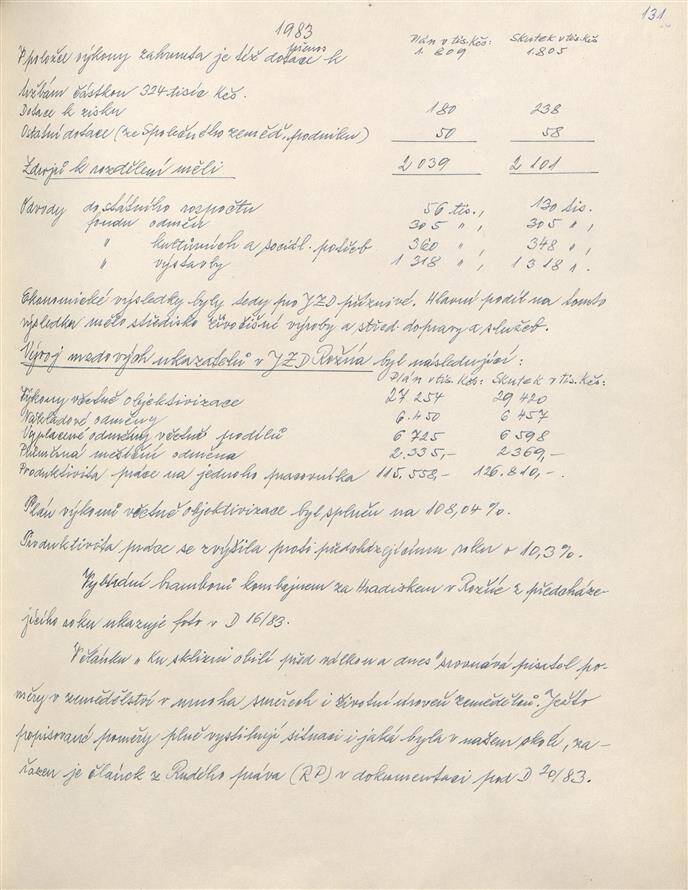 131
1983
Plán v tis. Kčs: Skutek v tis. Kčs
V položce výkony zahrnuta je též přímo dotace k 1.809 1.805
tržbám částkou 324 tisíc Kčs.
Dotace k zisku 180 238
Ostatní dotace (ze Společného zeměd. podniku) 50 58
Zdrojů k rozdělení měli 2 039 2 101
Odvody do státního rozpočtu 56 tis., 130 tis.
fondu odměn 305 " , 305 " ,
" kulturních a sociál. potřeb 360 " , 348 " ,
" výstavby 1 318 " , 1 318 " .
Ekonomické výsledky byly tedy pro JZD příznivé. Hlavní podíl na tomto
výsledku mělo středisko živočišné výroby a střed. dopravy a služeb.
Vývoj mzdových ukazatelů v JZD Rožná byl následující:
Plán v tis. Kčs: Skutek v tis. Kčs:
Výkony včetně objektivizace 27 254 29 420
Nákladové odměny 6.450 6 457
Vyplacené odměny včetně podílů 6 725 6 598
Průměrná měsíční odměna 2.335,- 2 369,-
Produktivita práce na jednoho pracovníka 115.558,- 126.810,-.
Plán výkonů včetně objektivizace byl splněn na 108,04 %.
Produktivita práce se zvýšila proti předcházejícímu roku o 10,3 %.
bramborů kombajnem za Hradiskem v Rožné z předcháze-
jícího roku ukazuje foto v D 16/83.
V článku " Ku sklizni obilí před válkou a dnes" srovnává pisatel po-
měry v zemědělství v mnoha směrech i životní úroveň zemědělců. Ježto
popisované poměry plně vystihují situaci i jaká byla v našem okolí, za-
řazen je článek z Rudého práva (RP) v dokumentaci pod D 20/83.